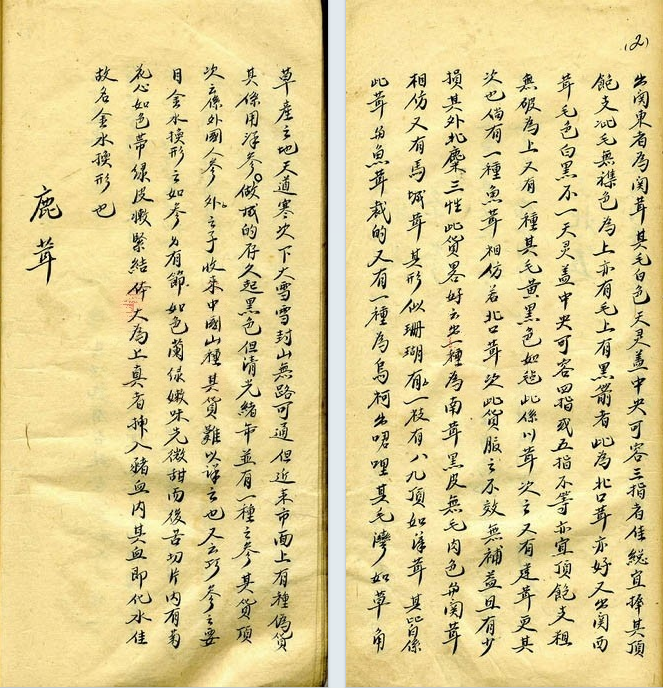 草產之地天道寒次下大雪雪封山無路可通但近来市面上有種偽貨
其係用洋參做成的存久起黑色但清光緒年並有一種之參其貨頂
次云係外國人參外之子收来中國山種其貨難以詳云也又云巧參之要
目金水換形之如參必有節如色蘭绿嫩味光微甜而後苦切片内有菊
花心如色帶緑皮嫩緊結体大為上真者抻入豬血内其血即化水佳
故名金水換形也
鹿茸
(2)
出関東者為関茸其毛白色天灵盖中央可容三指者佳総宜择其頂
飽支沘毛無襍色為上亦有毛上有黑箭者此為北口茸亦好又出関西
茸毛色白黑不一天灵盖中央可容四指或五指不等亦宜頂飽支粗
無破為上又有一種其毛黄黑色如毡此係川茸次之又有建茸更其
次也倘有一種魚茸相仿若北口茸次此貨服之不效無補益且有少
損其外北麋三性此貨畧好云出一種為南茸黑皮無毛肉色與関茸
相仿又有馬城茸其形似珊瑚有一枝有八九頂如洋茸其皆係
此茸與魚茸裁的又有一種為烏柯出咭哩其毛灣如草角